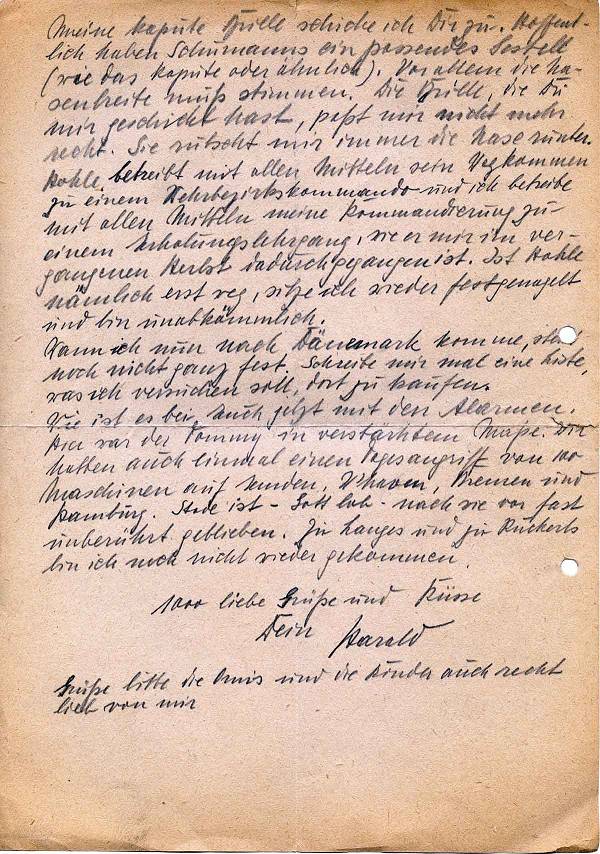 Meine kapute Brille schicke ich Dir zu. Hoffent-
lich haben Schumanns ein passendes Gestell
(wie das kapute oder ähnlich). Vor allem die Na-
senbreite muß stimmen. Die Brille, die Du
mir geschickt hast, paßt mir nicht mehr
recht. Sie rutscht mir immer die Nase runter.
Hohle betreibt mit allen Mitteln sein Wegkommen
zu einem Wehrbezirkskommando und ich betreibe
mit allen Mitteln meine Kommandierung zu
einem Erholungslehrgang, wie er mir im ver-
gangenen Herbst dadurch gegangen ist. Ist Hohle
nämlich erst weg, sitze ich wieder festgenagelt
und bin unabkömmlich.
Wann ich nun nach Dänemark komme, steht
noch nicht ganz fest. Schreibe mir mal eine Liste,
was ich versuchen soll, dort zu kaufen.
Wie ist es bei Euch jetzt mit den Alarmen.
Hier war der Tommy in verstärktem Maße. Wir
hatten auch einmal einen Tagesangriff von 100
Maschinen auf Emden, W'haven, Bremen und
Hamburg. Stade ist - Gott lob - nach wie vor fast
unberührt geblieben. Zu Langes und zu Rückerts
bin ich noch nicht wieder gekommen.
1000 liebe Grüße und Küsse
Dein Harald
Grüße bitte die Omis und die Kinder auch recht
lieb von mir